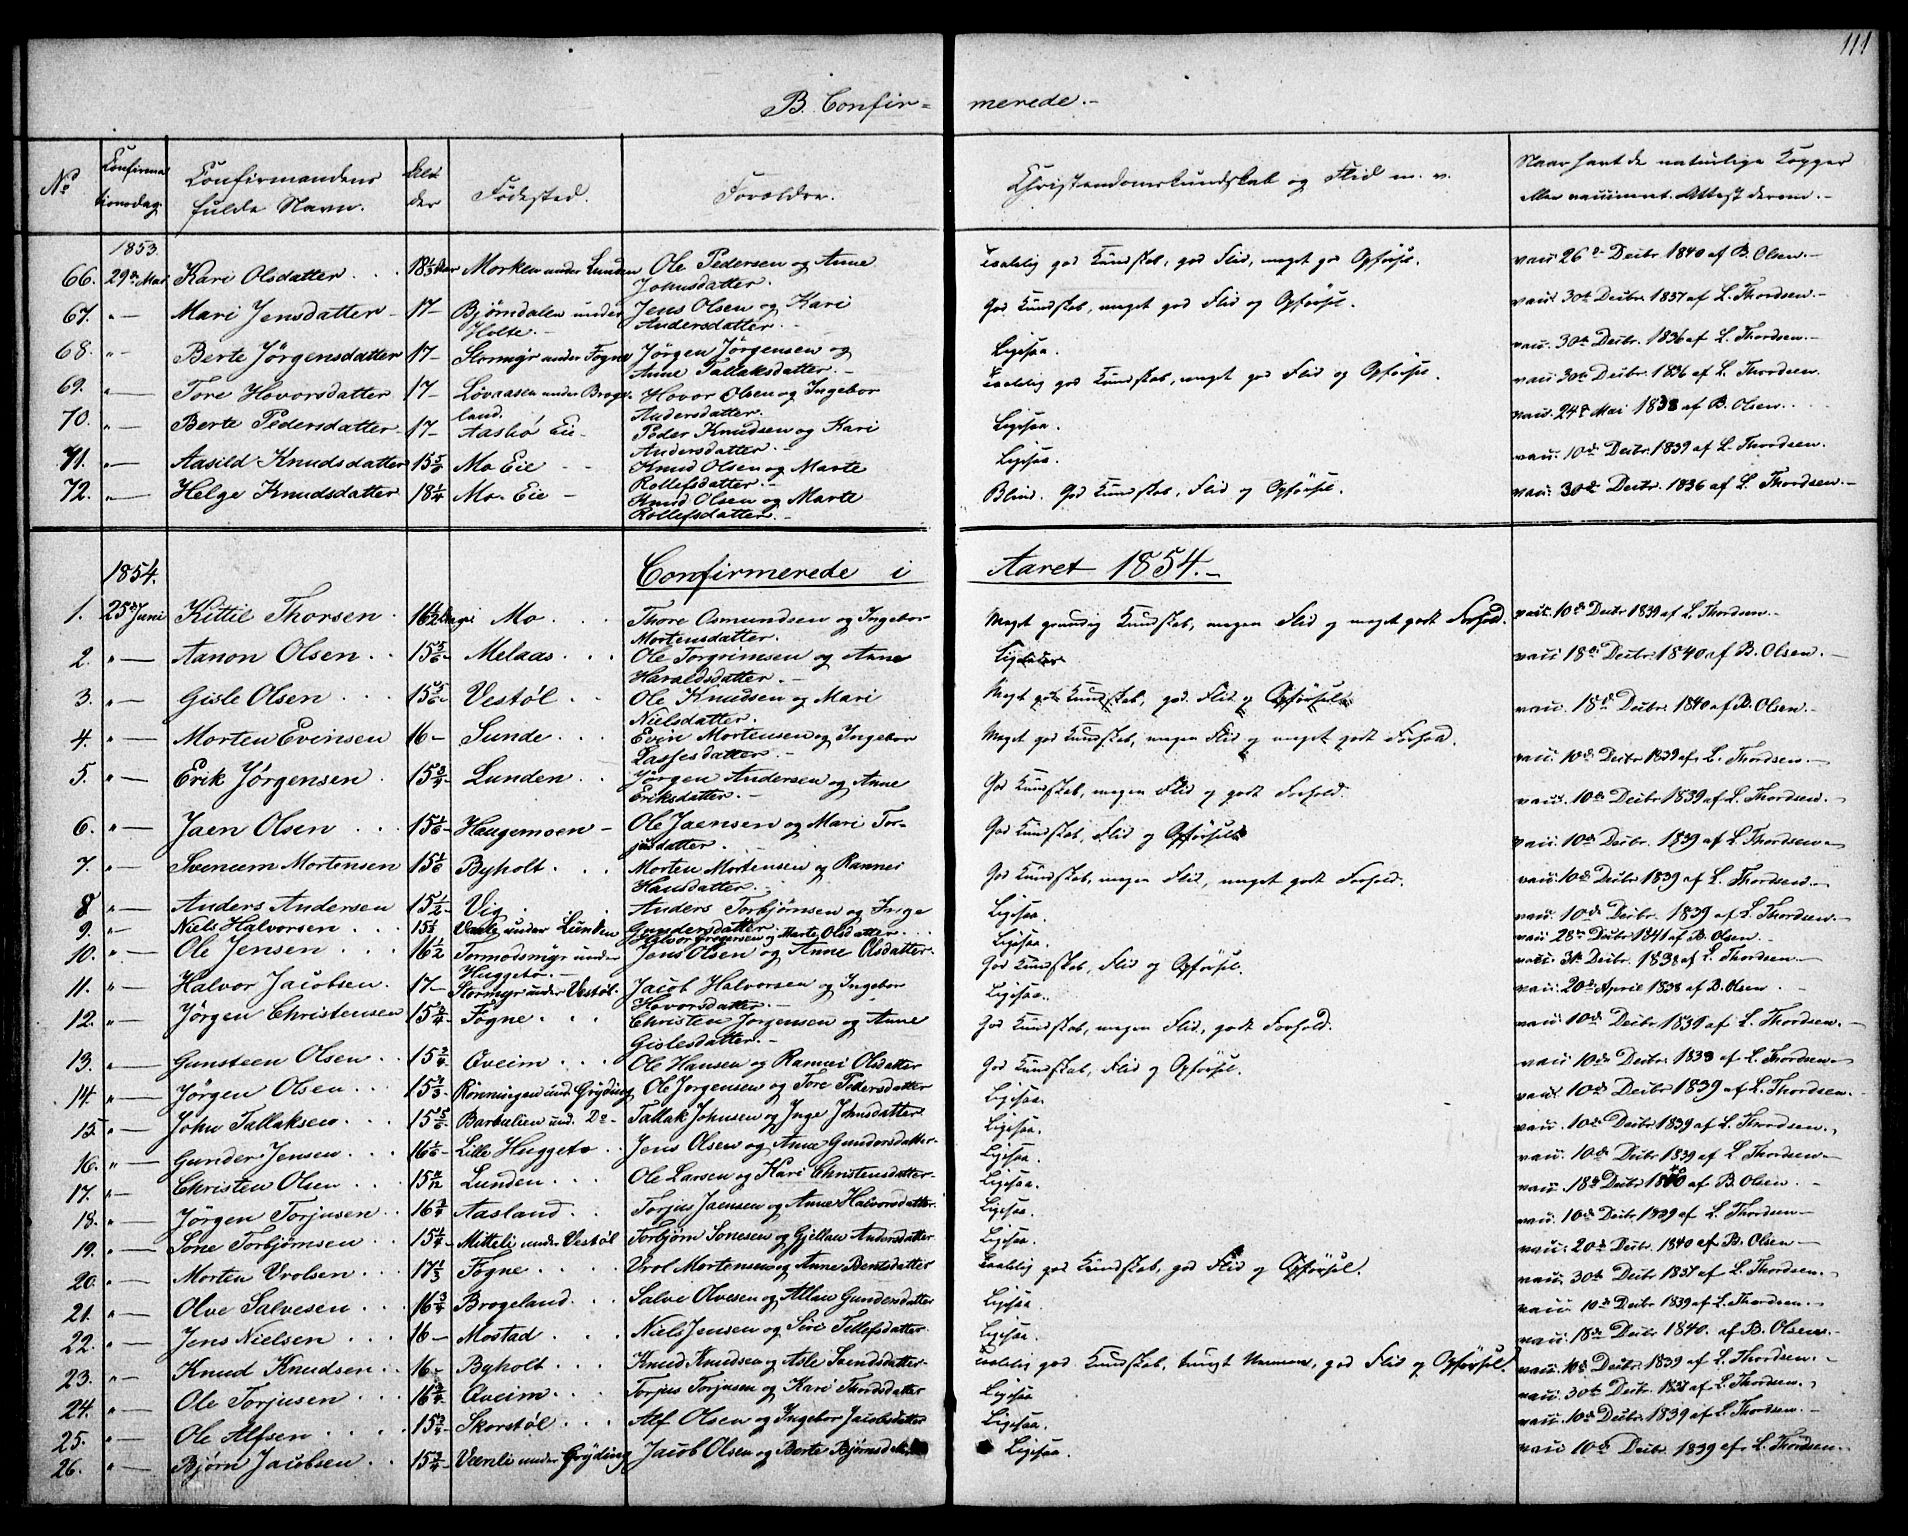 111
B. Confir- merede.-
No Confirma tionsdag. Confirmandens fulde Navn. Alder Fødested. Forældre. Christendomskundskab og Flid m. v. Naar havt de naturlige Kopper eller vaccineret. Attest derom.-
1853
66. 29de Mai Kari Olsdatter . . . 18 1/3 Aar Morken under Lunden Ole Pedersen og Anne Johnsdatter.- Taalelig god Kundskab, god Flid, meget god Opførsel. vacc. 26de Decbr. 1840 af B. Olsen.-
67. "- Mari Jensdatter - 17- Bjørndalen under Holte.- Jens Olsen og Kari Andersdatter.- God Kundskab, meget god Flid og Opførsel. vacc. 30te Decbr. 1837 af L. Thordsen.-
68. "- Berte Jørgensdatter 17- Stormyr under Fogne Jørgen Jørgensen og Anne Tallaksdatter.- Ligesaa. vacc. 30te Decbr. 1836 af L. Thordsen.-
69. "- Tore Hovorsdatter 17- Løvaasen under Broge- land. Hovor Olsen og Ingebor Andersdatter. Taalelig god Kundskab, meget god Flid og Opførsel. vacc. 30te Decbr. 1836 af L. Thordsen
70. "- Berte Pedersdatter - 17- Aasbø Eie- Peder Knudsen og Kari Andersdatter.- Ligesaa. vacc. 24de Mai 1838 af B. Olsen.
71. "- Aasild Knudsdatter 15 5/6 Mo Eie - - Knud Olsen og Marte Rollefsdatter.- Ligesaa. vacc. 10de Decbr. 1839 af L. Thordsen.
72. "- Helge Knudsdatter 18 1/4 Mo Eie - Knud Olsen og Marte Rollefsdatter.- Blind. God Kundskab, Flid og Opførsel. vacc. 30te Decbr. 1836 af L. Thordsen.-
1854. Confirmerede i Aaret 1854.-
1. 25de Juni Kittil Thorsen . 16 1/2 Mo . . . Thore Osmundsen og Ingebor Mortensdatter. Meget grundig Kundskab, megen Flid og meget godt Forhold. vacc. 10de Decbr 1839 af L. Thordsen.-
2. "- Aanon Olsen . . 15 5/6- Melaas . . . Ole Torgrimsen og Anne Haraldsdatter.- vacc 18de Decbr. 1840 af B. Olsen.-
3. "- Gisle Olsen . . . 15 5/6- Vestøl . . Ole Knudsen og Mari Nielsdatter. Meget god Kundskab, god Flid og Opførsel. vacc. 18de Decbr. 1840 af B. Olsen.-
4. "- Morten Evensen 16- Sunde . . . Even Mortensen og Ingebor Lassesdatter.- Meget god Kundskab, megen Flid og meget godt Forhold. vacc 10de Decbr. 1839 af L. Thordsen.-
5. "- Erik Jørgensen . 15 3/4- Lunden . . Jørgen Andersen og Anne Eriksdatter.- God Kundskab, megen Flid og godt Forhold. vacc. 10de Decbr 1839 af L. Thordsen.-
6. "- Jaen Olsen . . . 15 1/6- Haugemoen - Ole Jaensen og Mari Tor- jusdatter. God Kundskab, Flid og Opførsel. vacc. 10de Decbr. 1839 af L. Thordsen-
7. "- Svenum Mortensen 15 1/6 Byholt . . . Morten Mortensen og Rannei Hansdatter.- God Kundskab, megen Flid, meget godt Forhold. vacc. 10de Decbr 1839 af L. Thordsen.-
8 "- Anders Andersen 15 1/2- Vig . . . Anders Torbjørnsen og Inge Gundersdatter. Ligesaa. vacc. 10de Decbr. 1839 af L. Thordsen.-
9. "- Niels Halvorsen . . . under Lunden Halvor Gregersen og Marte Olsdatter. . . Ligesaa. vacc 28de Decbr 1841 af B. Olsen.-
10. "- Ole Jensen . . . 16 1/2 Tormodsmyr under Huggeto.- Jens Olsen og Anne Olsdatter. God Kundskab, Flid og Opførsel. vacc. 31te Decbr. 1838 af L. Thordsen.-
11. "- Halvor Jacobsen . 17- Stormyr under Vestøl. Jacob Halvorsen og Ingebor Hovorsdatter.- Ligesaa. vacc 20de April 1838 af B. Olsen
12. "- Jørgen Christensen 15 3/4- Fogne . . . Christen Jørgensen og Anne Gislesdatter.- God Kundskab, megen Flid, godt Forhold. vacc 10de Decbr. 1839 af L. Thordsen.-
13. "- Gunsteen Olsen . . 15 3/4- Aveim . . . Ole Hansen og Rannei Olsdatter God Kundskab, Flid og Opførsel. vacc 10de Decbr. 1838 af L. Thordsen-
14. "- Jørgen Olsen . . . Rønningen und. Grøding Ole Jørgensen og Tore Pedersdatter Ligesaa. vacc. 10de Decbr 1839 af L. Thordsen.-
15 "- John Tallaksen . . . 15 5/6- Barbulien und. Do - Tallak Johnsen og Inge Johnsdatter Ligesaa. vacc. 10de Decbr. 1839 af L. Thordsen.
16. "- Gunder Jensen . . . 16 1/6- Lille Huggeto . . Jens Olsen og Anne Gundersdatter- Ligesaa. vacc. 10de Decbr 1839 af L. Thordsen.-
17. "- Christen Olsen . . . Lunden . . . Ole Larsen og Kari Christensdatter- Ligesaa. vacc 18de Decbr 1840 af B. Olsen .-
18. "- Jørgen Torjusen . . 16 3/4- Aasland . . Torjus Jaensen og Anne Halvorsdatter. Ligesaa. vacc. 10de Decbr 1839 af L. Thordsen-
19. "- Sone Torbjørnsen . . 15 1/4- Mitteli under Vestøl Torbjørn Sonesen og Gjellau Andersdatter Ligesaa. vacc 20de Decbr 1840 af B. Olsen-
20. "- Morten Vrolsen . . . 17 1/3 Fogne . . . . Vrol Mortensen og Anne Berntsdatter Taalelig god Kundskab, god Flid og Opførsel. vacc. 30te Decbr. 1837 af L. Thordsen.-
21. "- Olve Salvesen . . . 16 3/4 Brogeland . . . Salve Olvesen og Allau Gundersdatter Ligesaa. vacc 10de Decbr 1839 af L. Thordsen.-
22. "- Jens Nielsen . . . 16- Mostad . . . Niels Jensen og Siri Tellefsdatter. Ligesaa. vacc. 18de Decbr 1840. af B. Olsen.-
23. "- Knud Knudsen . . 16- Byholt . . . . Knud Knudsen og Asle Saendsdatter- Taalelig god Kundskab, tungt Nemme, god Flid og Opførsel. vacc 10de Decbr. 1839 af L. Thordsen.-
24. "- Ole Torjusen . . . Aveim . . . Torjus Torjusen og Kari Thordsdatter Ligesaa vacc. 30te Decbr 1837 af L. Thordsen.
25. "- Ole Alfsen . . . . 15 3/4- Skorstøl . . . Alf Olsen og Ingebor Jacobsdatter Ligesaa. vacc. 10de Decbr 1839 af L. Thordsen.-
26. "- Bjørn Jacobsen . . 15 3/4- Vænli under Grøding Jacob Olsen og Berte Ligesaa. vacc 10de Decbr. 1839 af L. Thordsen.-